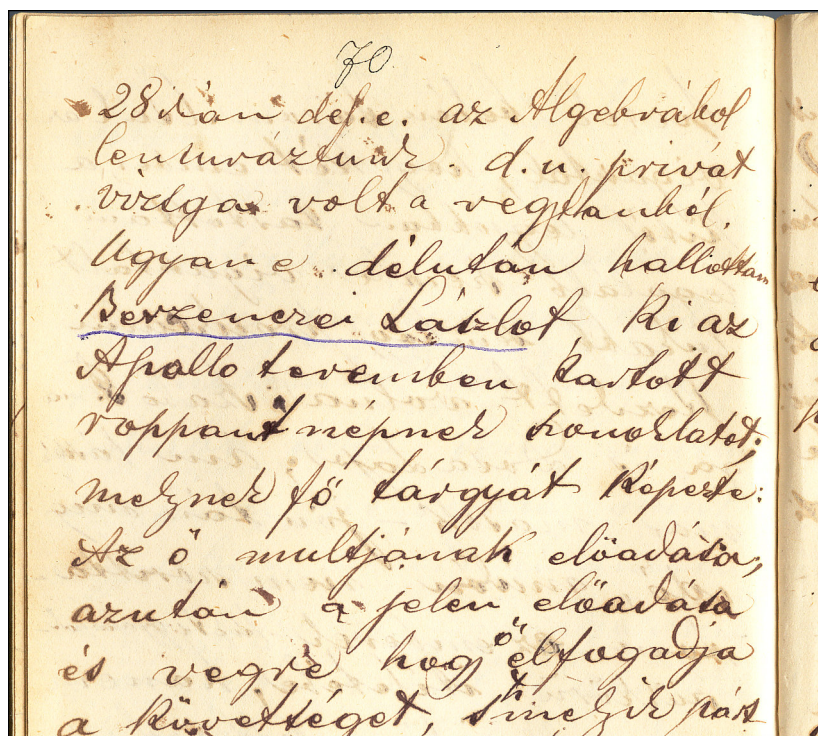 70
28kán dél.e. az Algebrából
lenuráztunk. d.u. privát
vizsga volt a vegytanból.
Ugyan e délután hallottam
Berzenczei Lászlot, ki az
Apollo teremben tartott
roppant népnek szonoklatot;
melynek fő tárgyát képezte:
Az ő multjának előadása,
azután a jelen előadása
és vegre hogy ő elfogadja
a követséget, s melyik párt